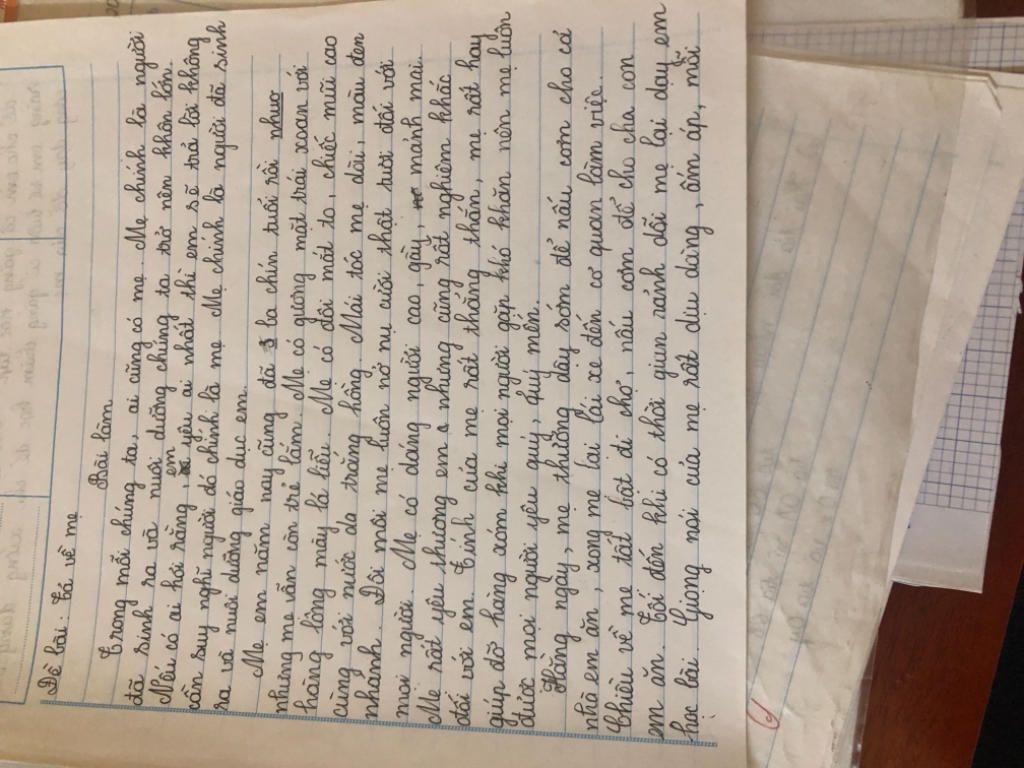 Đề bài: Tả về mẹ
Bài làm
Trong mỗi chúng ta, ai cũng có mẹ. Mẹ chính là người
đã sinh ra và nuôi dưỡng chúng ta trở nên khôn lớn.
Nếu có ai hỏi rằng, em yêu ai nhất thì em sẽ trả lời không
cần suy nghĩ người đó chính là mẹ. Mẹ chính là người đã sinh
ra và nuôi dưỡng giáo dục em.
Mẹ em năm nay cũng đã ba chín tuổi rồi nhưng
nhưng mẹ vẫn còn trẻ lắm. Mẹ có gương mặt trái xoan với
hàng lông mày lá liễu. Mẹ có đôi mắt to, chiếc mũi cao
cùng với nước da trắng hồng. Mái tóc mẹ dài, màu đen
nhánh. Đôi môi mẹ luôn nở nụ cười thật tươi đối với
mọi người. Mẹ có dáng người cao, gầy, mảnh mai.
Mẹ rất yêu thương em nhưng cũng rất nghiêm khắc
đối với em. Tính của mẹ rất thẳng thắn, mẹ rất hay
giúp đỡ hàng xóm khi mọi người gặp khó khăn nên mẹ luôn
được mọi người yêu quý, quý mến.
Hằng ngày, mẹ thường dậy sớm để nấu cơm cho cả
nhà em ăn, xong mẹ lại lái xe đến cơ quan làm việc.
Chiều về mẹ tất bật đi chợ, nấu cơm để cho cha con
em ăn. Tối đến khi có thời gian rảnh dỗi mẹ lại dạy em
học bài. Giọng nói của mẹ rất dịu dàng, ấm áp, mỗi